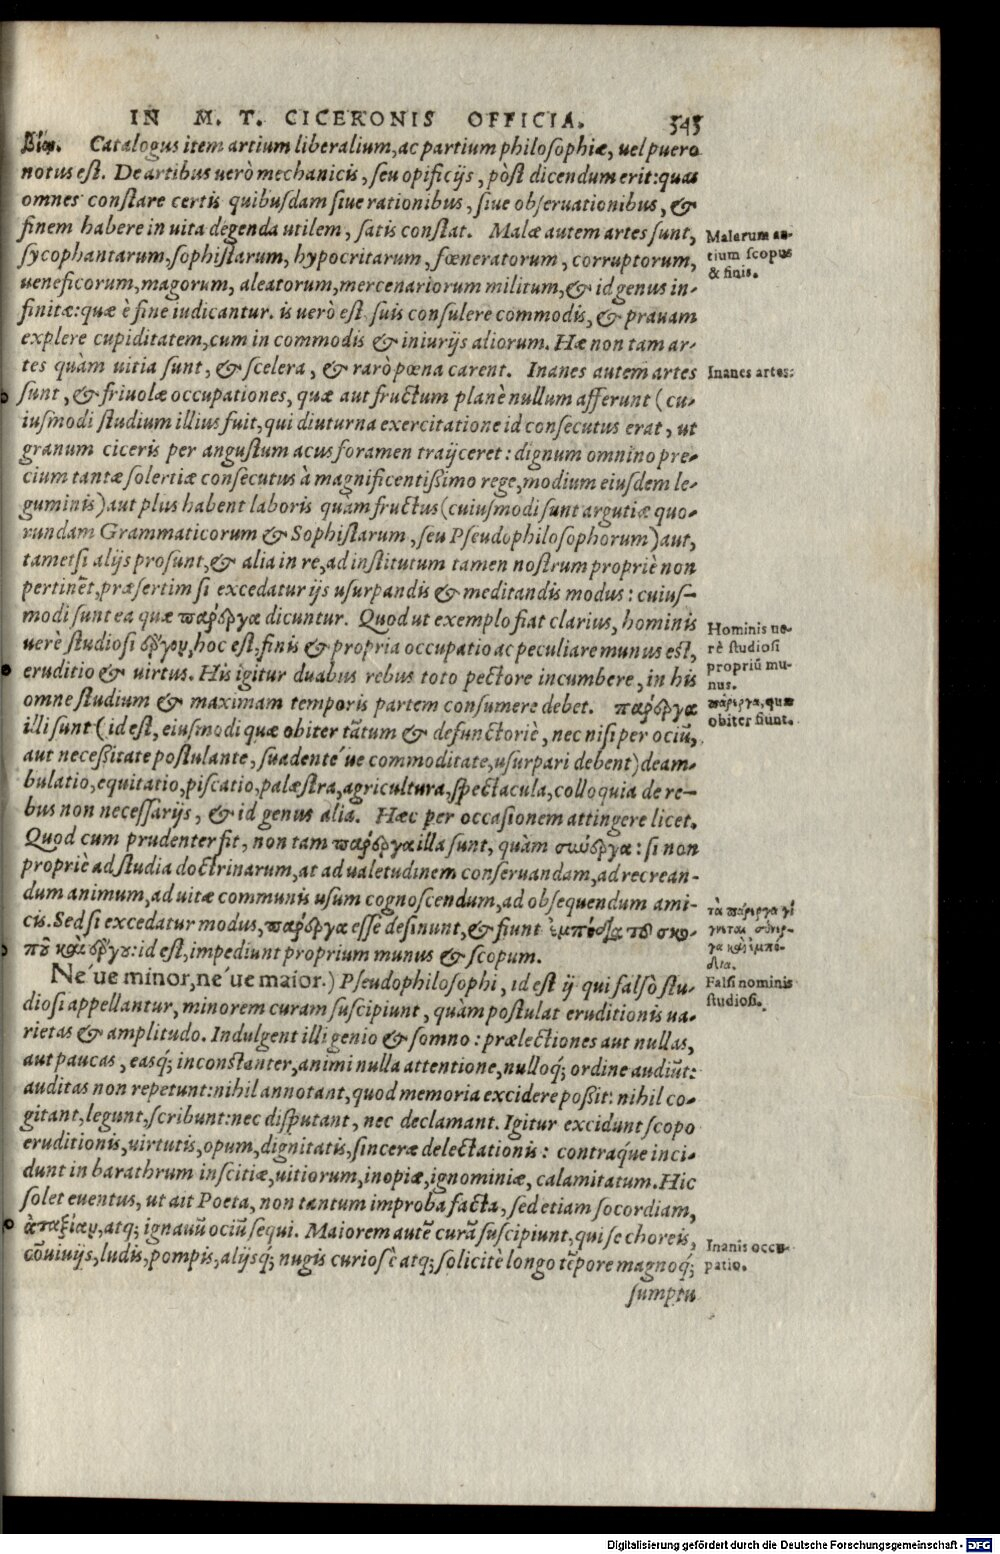 IN M. T. CICERONIS OFFICIA. 545
βίῳ. Catalogus item artium liberalium, ac partium philosophiæ, uel puero
notus est. De artibus uerò mechanicis, seu opificijs, pòst dicendum erit: quas
omnes constare certis quibusdam siue rationibus, siue obseruationibus, &
finem habere in uita degenda utilem, satis constat. Malæ autem artes sunt,
sycophantarum, sophistarum, hypocritarum, fœneratorum, corruptorum,
ueneficorum, magorum, aleatorum, mercenariorum militum, & id genus in-
finitæ: quæ è fine iudicantur. is uerò est, suis consulere commodis, & prauam
explere cupiditatem, cum incommodis & iniurijs aliorum. Hæ non tam ar-
tes quàm uitia sunt, & scelera, & rarò pœna carent. Inanes autem artes
sunt, & friuolæ occupationes, quæ aut fructum planè nullum afferunt (cu-
iusmodi studium illius fuit, qui diuturna exercitatione id consecutus erat, ut
granum ciceris per angustum acus foramen traijceret: dignum omnino pre-
cium tantæ solertiæ consecutus à magnificentißimo rege, modium eiusdem le-
guminis) aut plus habent laboris quàm fructus (cuiusmodi sunt argutiæ quo-
rundam Grammaticorum & Sophistarum, seu Pseudophilosophorum) aut,
tametsi alijs prosunt, & alia in re, ad institutum tamen nostrum propriè non
pertinēt, præsertim si excedatur ijs usurpandis & meditandis modus: cuius-
modi sunt ea quæ πάρεργα dicuntur. Quod ut exemplo fiat clarius, hominis
uerè studiosi ἔργον, hoc est, finis & propria occupatio ac peculiare munus est,
eruditio & uirtus. His igitur duabus rebus toto pectore incumbere, in his
omne studium & maximam temporis partem consumere debet. πάρεργα
illi sunt (id est, eiusmodi quæ obiter tātum & defunctoriè, nec nisi per ociū,
aut neceßitate postulante, suadente´ue commoditate, usurpari debent) deam-
bulatio, equitatio, piscatio, palæstra, agricultura, spectacula, colloquia de re-
bus non necessarijs, & id genus alia. Hæc per occasionem attingere licet.
Quod cum prudenter fit, non tam πάρεργα illa sunt, quàm σύνεργα: si non
propriè ad studia doctrinarum, at ad ualetudinem conseruandam, ad recrean-
dum animum, ad uitæ communis usum cognoscendum, ad obsequendum ami-
cis. Sed si excedatur modus, πάρεργα esse desinunt, & fiunt ἐμπόδια τοῦ σκο-
ποῦ καὶ ἔργου: id est, impediunt proprium munus & scopum.
Ne´ue minor, ne´ue maior.) Pseudophilosophi, id est ij qui falsò stu-
diosi appellantur, minorem curam suscipiunt, quàm postulat eruditionis ua-
rietas & amplitudo. Indulgent illi genio & somno: prælectiones aut nullas,
aut paucas, easq́; inconstanter, animi nulla attentione, nulloq́; ordine audiūt:
auditas non repetunt: nihil annotant, quod memoria excidere poßit: nihil co-
gitant, legunt, scribunt: nec disputant, nec declamant. Igitur excidunt scopo
eruditionis, uirtutis, opum, dignitatis, sinceræ delectationis: contraq́ue inci-
dunt in barathrum inscitiæ, uitiorum, inopiæ, ignominiæ, calamitatum. Hic
solet euentus, ut ait Poeta, non tantum improba facta, sed etiam socordiam,
ἀταξίαν, atq; ignauū ociū sequi. Maiorem autē curā suscipiunt, qui se choreis,
cōuiuijs, ludis, pompis, alijsq́; nugis curiosè atq; solicitè longo tēpore magnoq́;
sumptu
Malarum ar-
tium scopus
& finis.
Inanes artes.
Hominis ue-
rè studiosi
propriū mu-
nus.
πάρεργα, quæ
obiter fiunt.
τὰ πάρεργα γί
γνεται σύνερ-
γα καὶ ἐμπό-
δια.
Falsi nominis
studiosi.
Inanis occu-
patio.
Digitalisierung gefördert durch die Deutsche Forschungsgemeinschaft - DFG